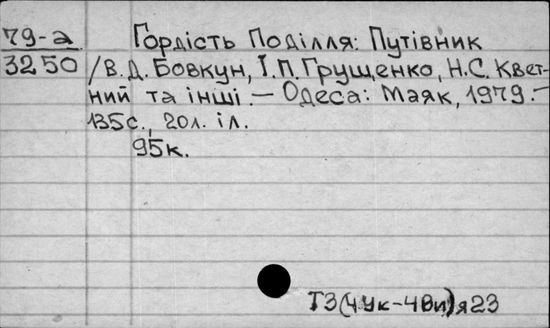 79-а Гордість Поділля: Путівник
3250 /В.Д. Бовкун, І.П. Грущенко, Н.С. Квет-
ний та інші. – Одеса: Маяк, 1979. –
135с., 20л. іл.
95к.
Т3(4Ук-4Ви)я23